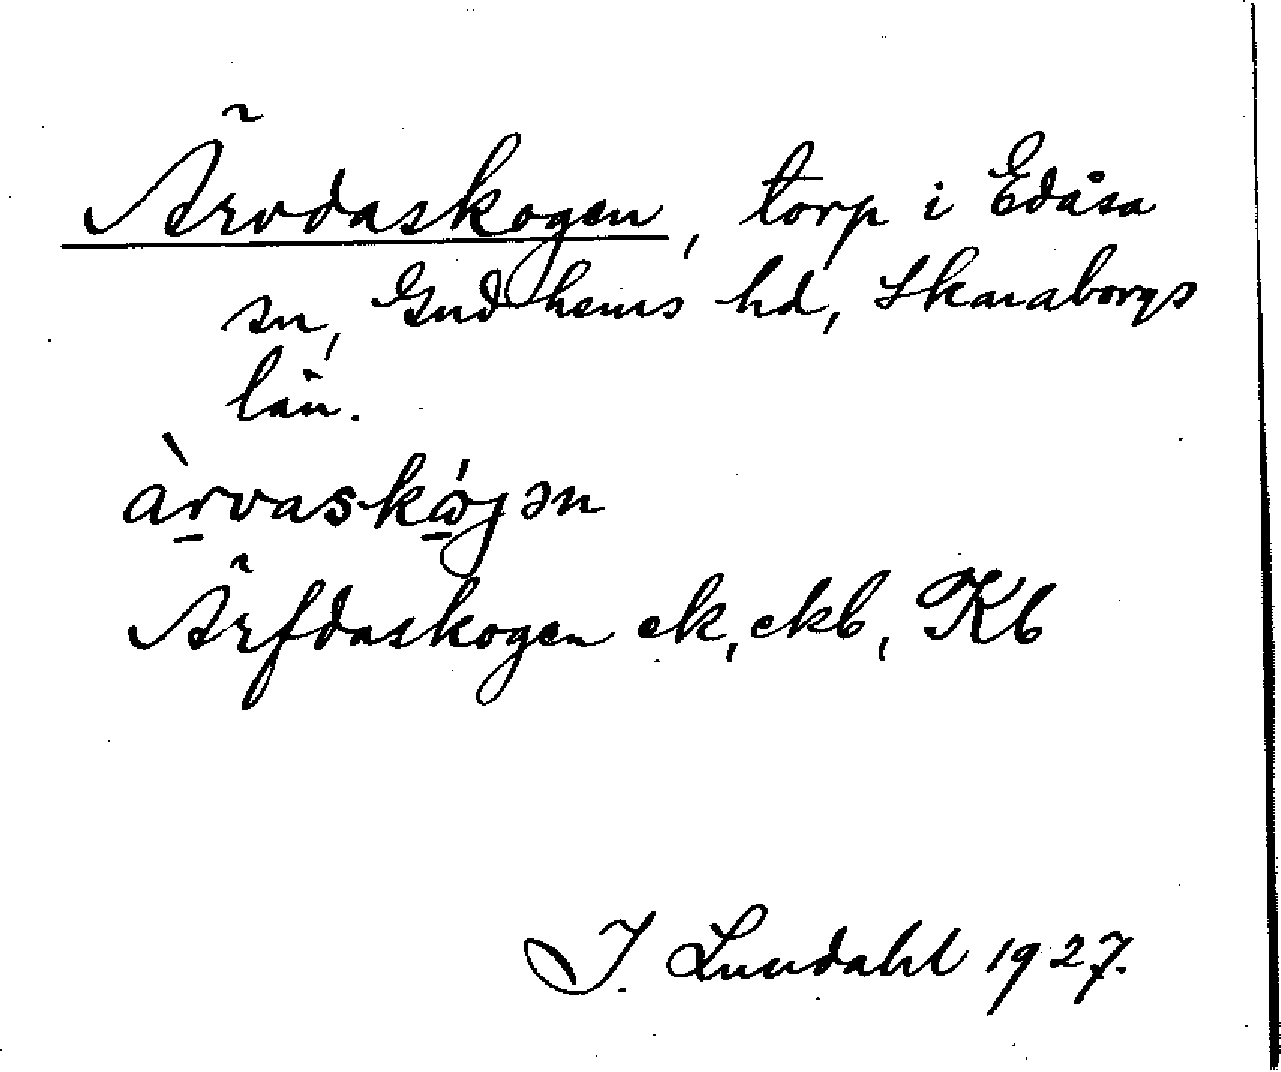 Ärvdaskogen, torp i Edåsa
sn, Gudhems hd, Skaraborgs
län.
àrvaskó̱gən
Ärfdaskogen ek, ekb, Kb
I. Lundahl 1927.